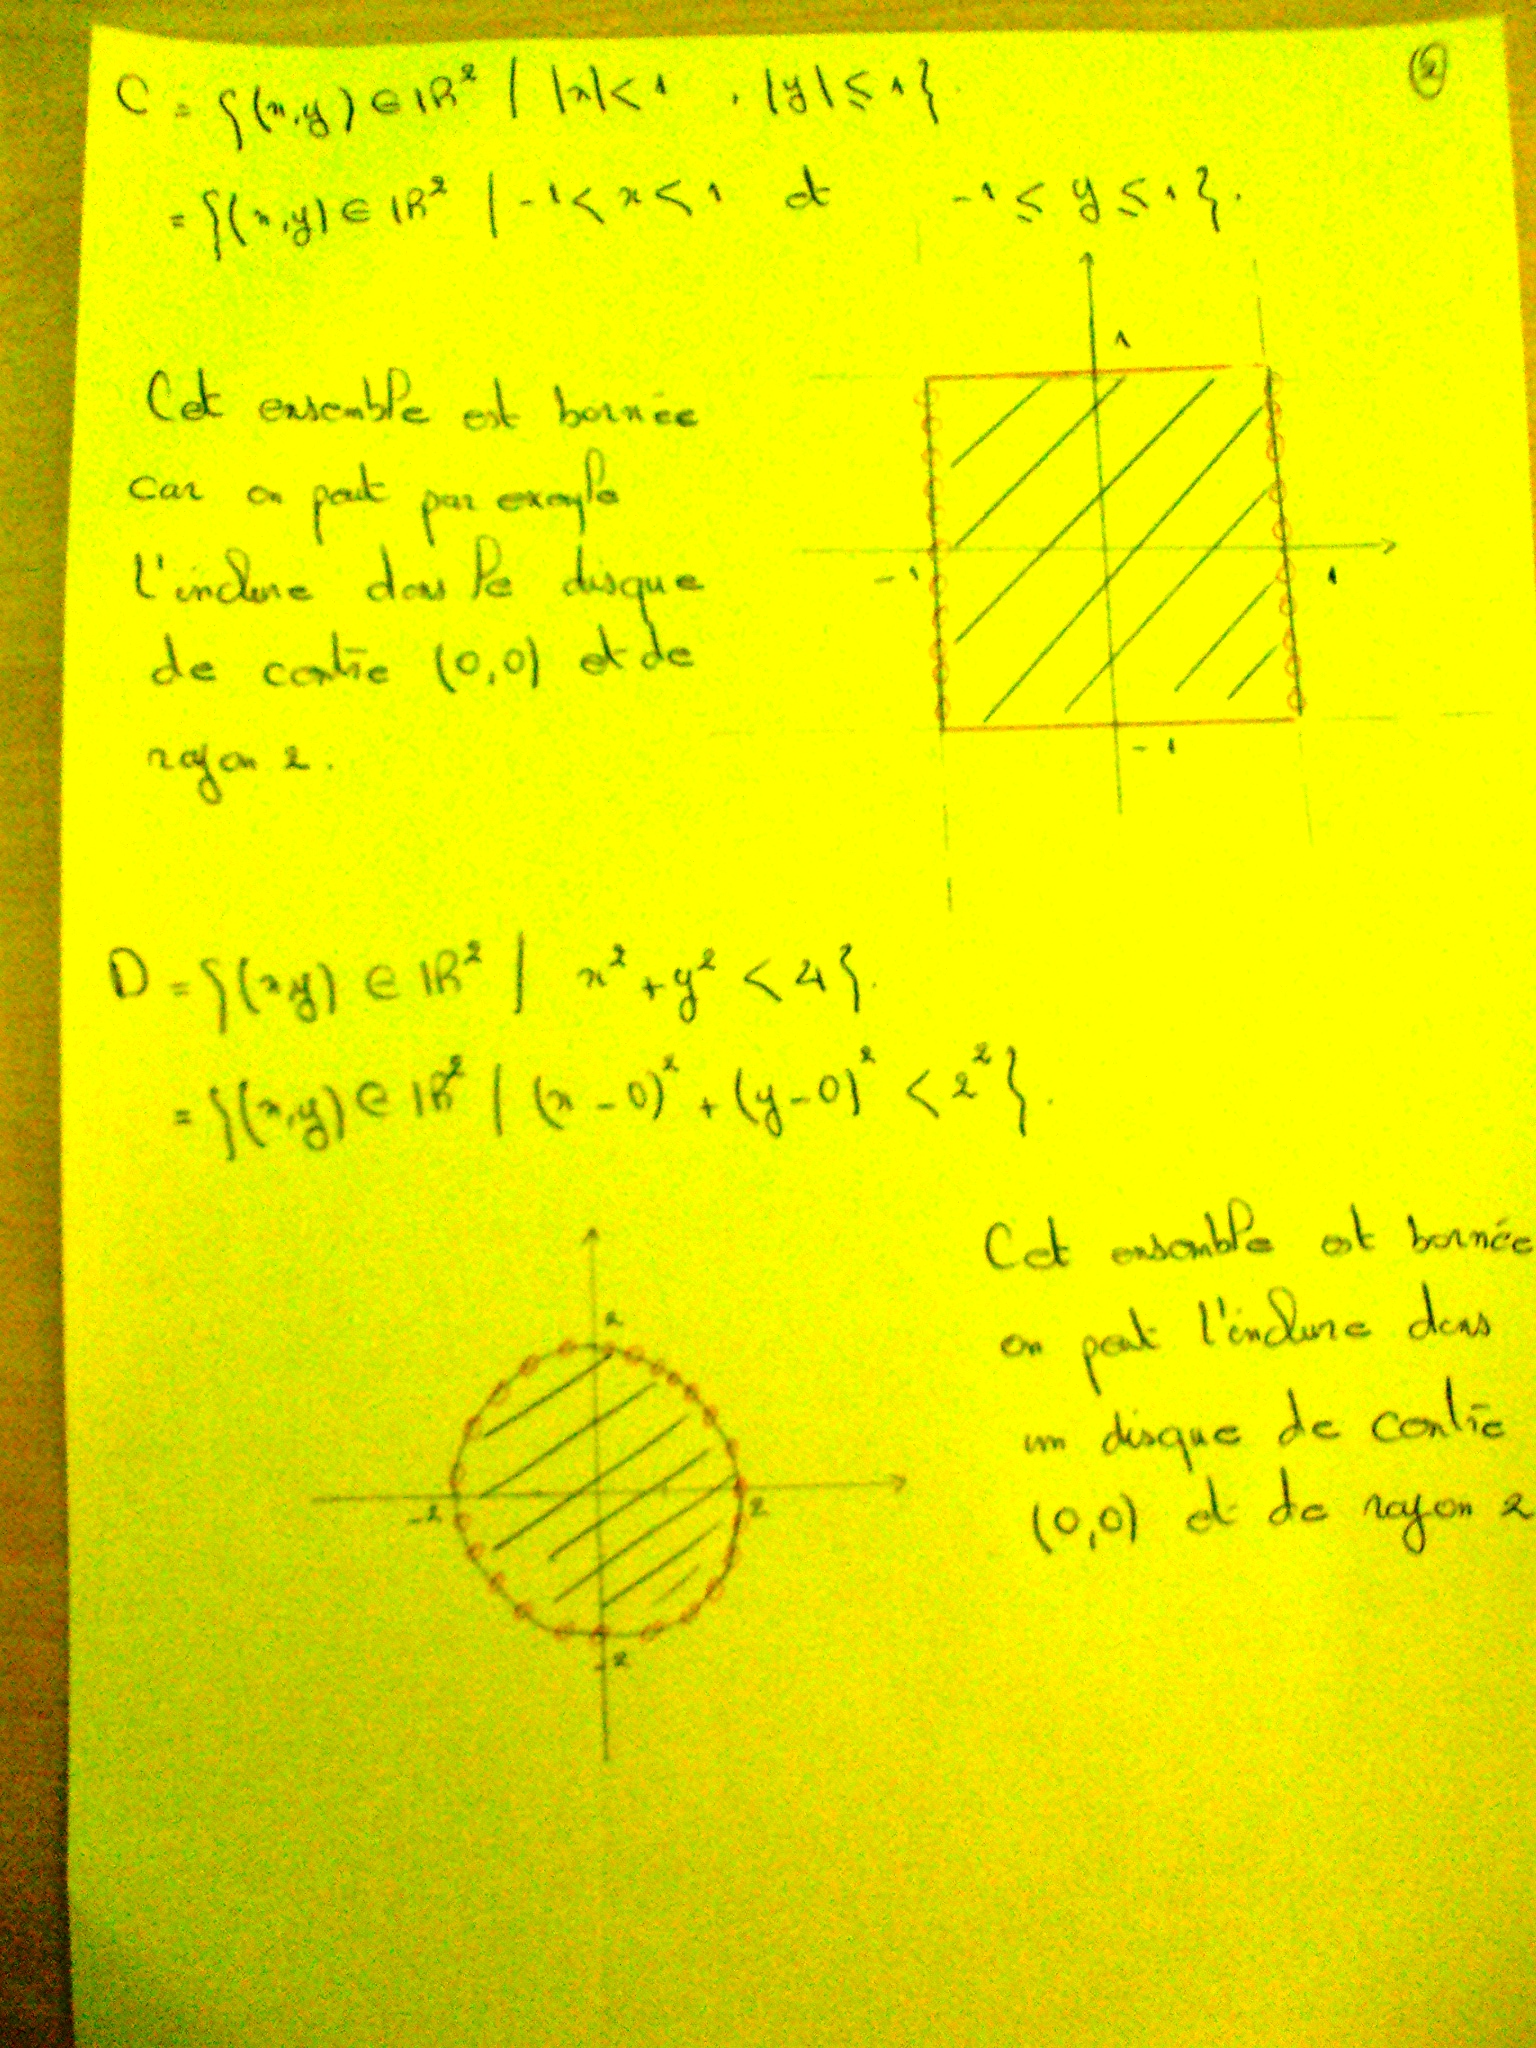 ②
C = {(x,y) ∈ IR² / |x| < 1 , |y| ≤ 1}.
= {(x,y) ∈ IR² / -1 < x < 1 et -1 ≤ y ≤ 1}.
1
Cet ensemble est bornée
car on peut par exemple
-1 1
l'inclure dans le disque
de centre (0,0) et de
-1
rayon 2.
D = {(x,y) ∈ IR² / x² + y² < 4}.
= {(x,y) ∈ IR² / (x-0)² + (y-0)² < 2²}.
Cet ensemble est bornée
2
on peut l'inclure dans
un disque de centre
-2 2
(0,0) et de rayon 2
-2